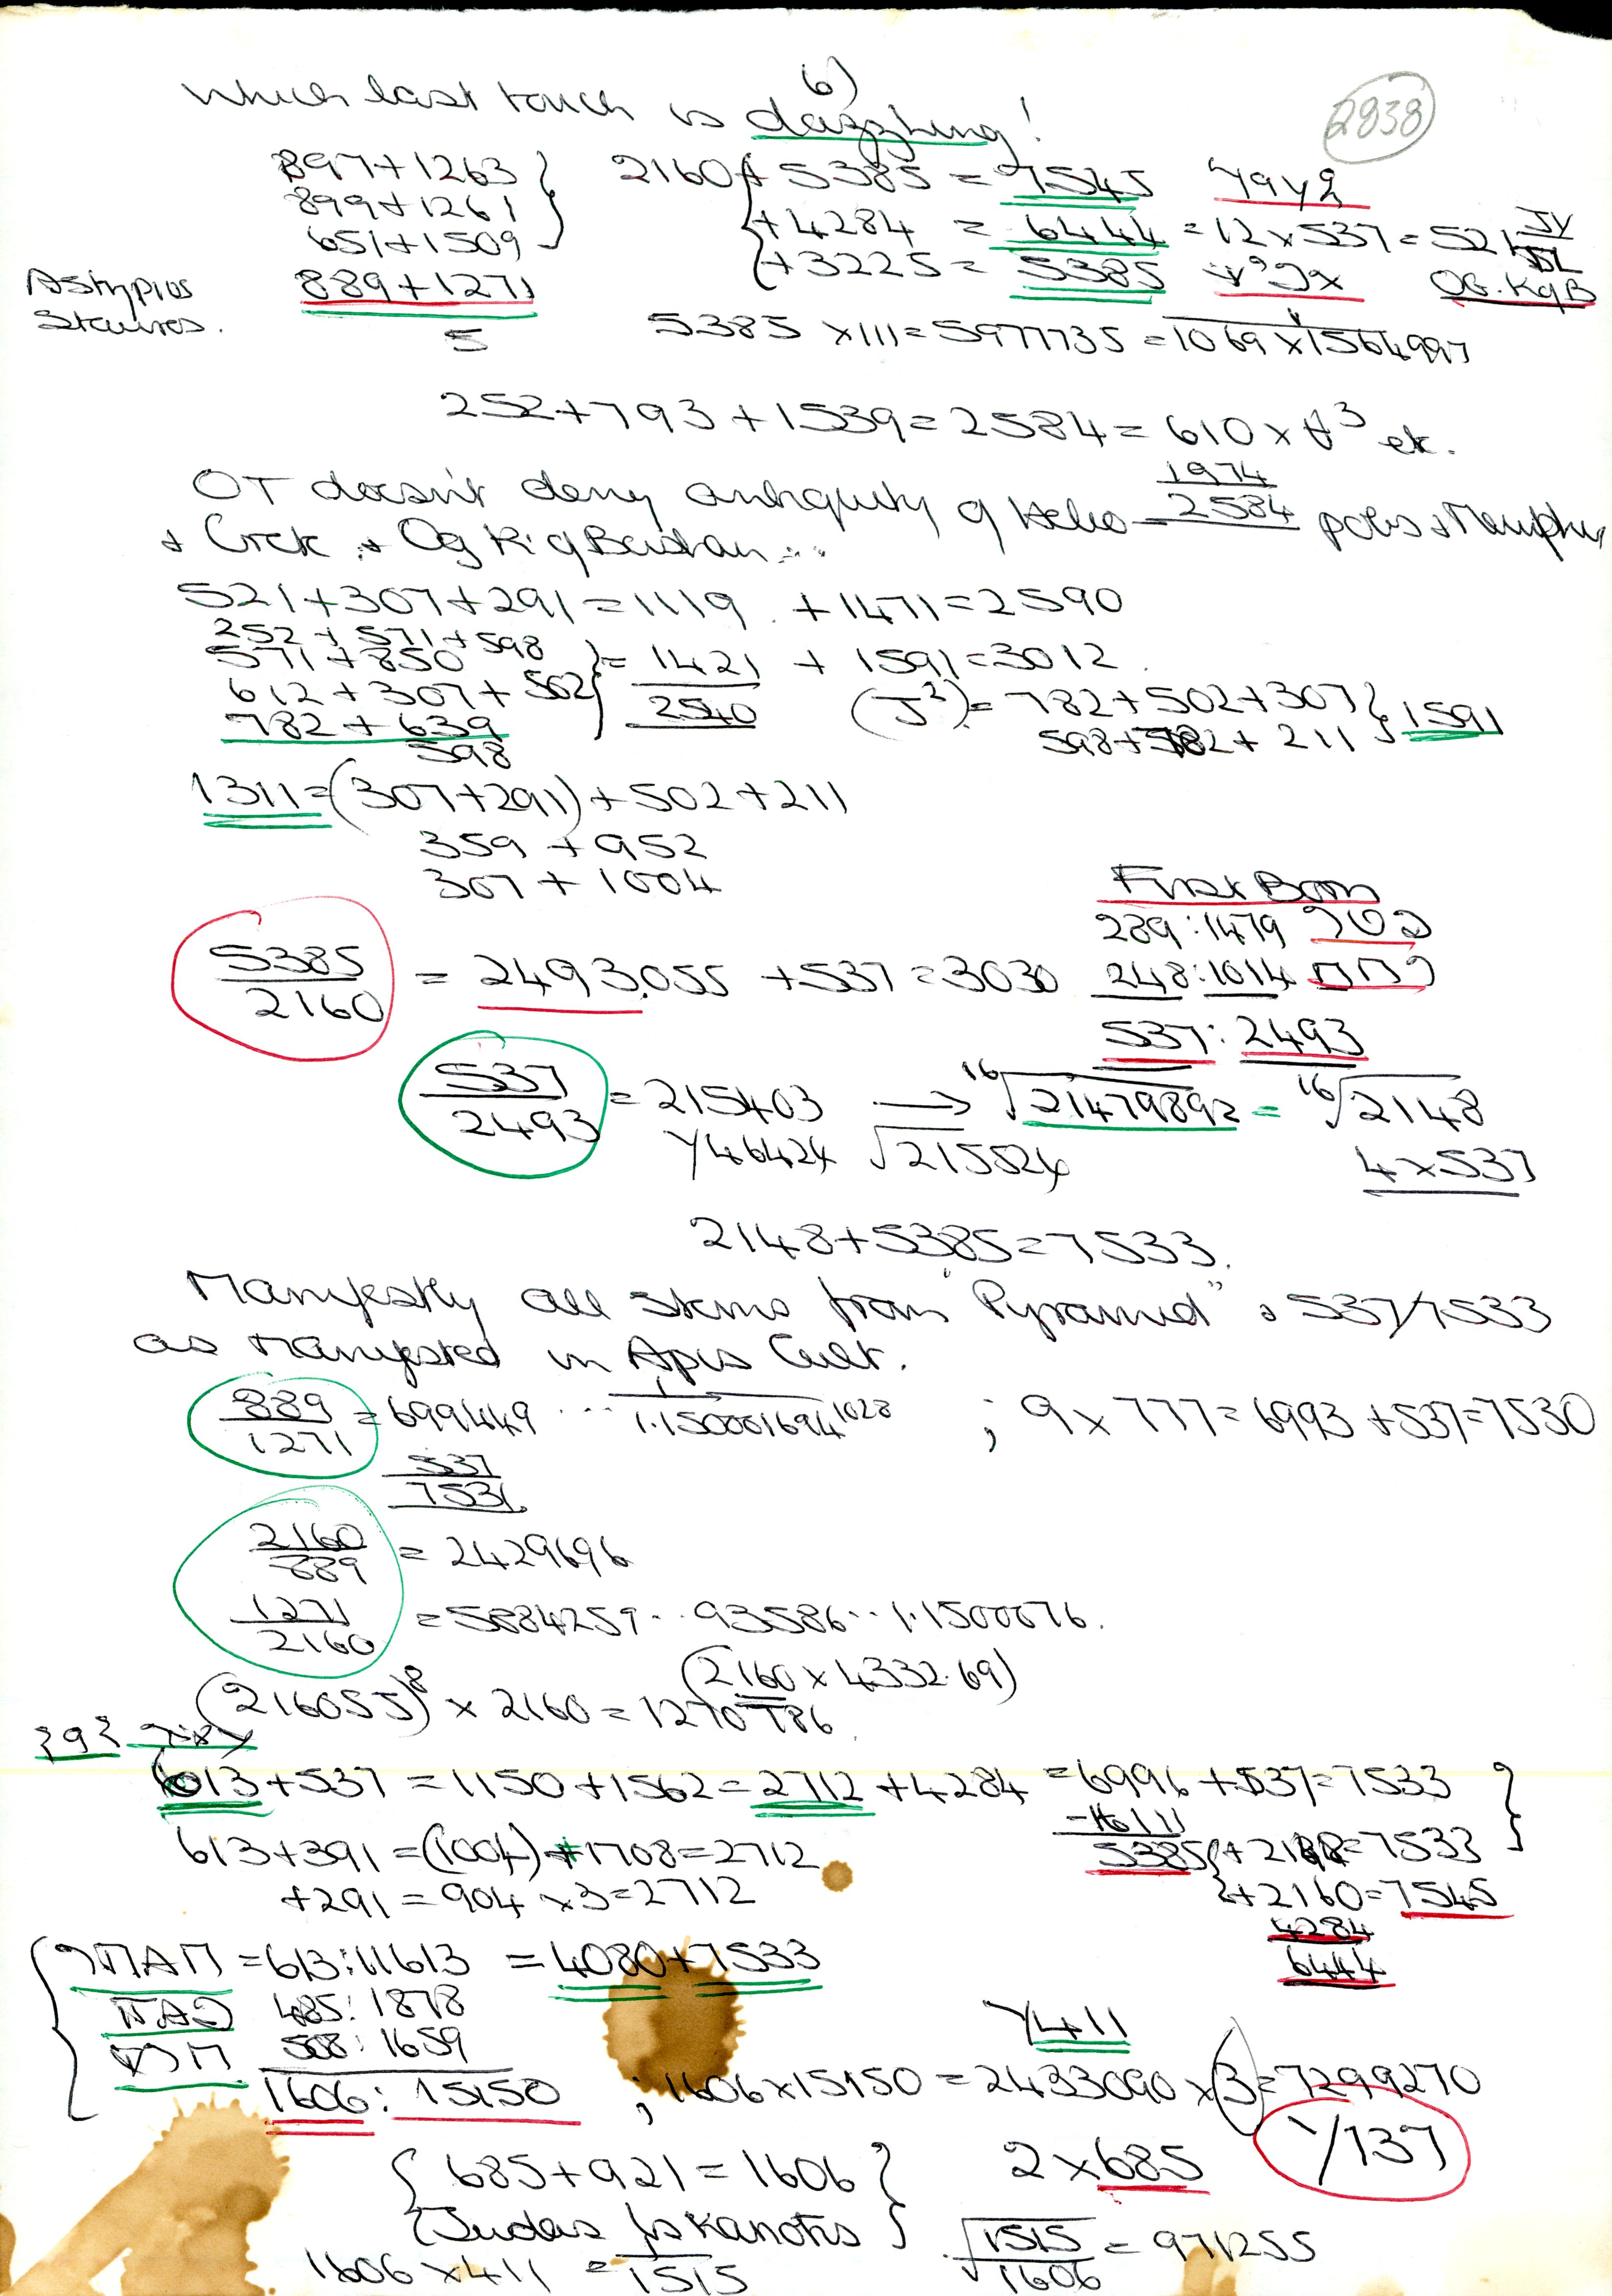 6)
which last touch is dazzling!
2838
897+1263 } 2160 { + 5385 = 7545
899+1261 + 4284 = 6444 = 12 x 537 = 521
651+1509 + 3225 = 5385 OG. KgB
889+1271
Stauros.
5
5385 x 111 = 5977735 = 1069 x
252+793+1539=2584= 610 x
OT doesn't deny antiquity of Helio- 1974/2584 polis + Memphis
+ Crete + Og K. of Bashan...
521+307+291=1119 +1471=2590
252 + 571 + 598
571+850 } = 1421 + 1591=3012
612+307+502 2540 (J²)= 782+502+307 } 1591
782+639 598+782+211
598
1311=(307+291)+502+211
359 + 952
307 + 1004
First Born
289:1479
5385/2160 = 2493.055 +537=3030 248:1014
537:2493
537/2493 = 215403 → 16√21479892 = 16√2148
Y46424 √215524 4x537
2148+5385=7533.
Manifestly all stems from "Pyramid" 537/7533
as Manifested in Apis Cult.
889/1271 = 699449 ... 1.150001694 1028 ; 9x777=6993+537=7530
537
7531
2160/889 = 2429696
1271/2160 = 5884259.. 93586.. 1.1500076.
(2160x4332.69)
(216055)⁸ x 2160 = 1270786
613+537=1150+1562=2712+4284 =6996+537=7533
-1611
613+391=(1004)+1708=2712 5385 {+2148=7533
+291=904 x3=2712 +2160=7545
4284
6444
=613:11613 =4080+7533
485:1878
508:1659 Y411
1606:15150 ; 1606x15150=2433090x(3)=7299270
Y137
{ 685+921=1606 } 2x685
{ Judas Iskariotis }
1606x411 = 1515 √1515/1606 = 971255